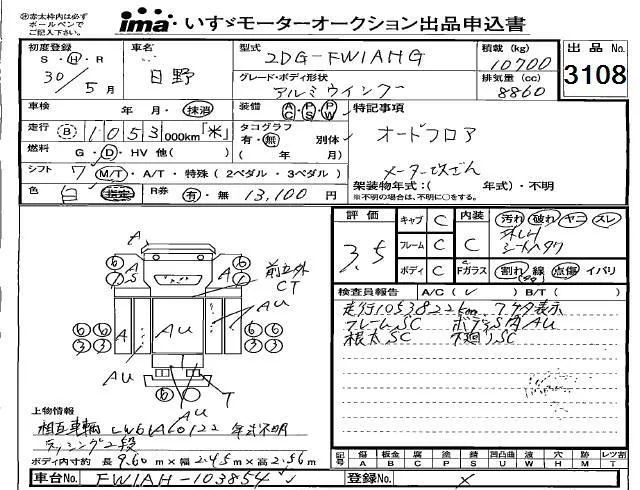 ㊟赤太枠内は必ず
ボールペンで
ご記入下さい。
ima いすゞモーターオークション出品申込書
初度登録 S・H・R 30/5月
車名 日野
型式 2DG-FW1AHG
グレード・ボディ形状 アルミウイング
積載(kg) 10700
排気量(cc) 8860
出品No. 3108
車検 年 月・抹消
装備 AC・PS・PW
特記事項
オートフロア
メーター改ざん
走行 B 1053 000km「米」
タコグラフ 有・無 別体
( 年 月)
燃料 G・D・HV 他( )
シフト 7 M/T・A/T・特殊(2ペダル・3ペダル)
架装物年式:( 年式)・不明
※不明の場合は、不明に○をする。
色 白 指定 R券 有・無 13,100円
評価 3.5
キャブ C
フレーム C
ボディ C
内装 C 汚れ 破れ ヤニ スレ
Fガラス 割れ 線 点傷 イバリ
検査員報告 A/C(レ) B/T( )
走行1053822km 7ケタ表示
フレームSC ボデーS角AU
根太SC 下廻りSC
前立外
CT
A A A A AU AU AU AU T
⑥ ⑥ ③ ③
上物情報
相互車輌 年式不明
ラッシング2段
ボディ内寸約 長9.60m×幅2.45m×高2.56m
記号 傷 A 板金 B 腐 C 塗 P 錆 S 凹凸曲 U 波 W 穴 H 跡 M 才 T レツ割
車台No. FW1AH-103854
登録No. ×